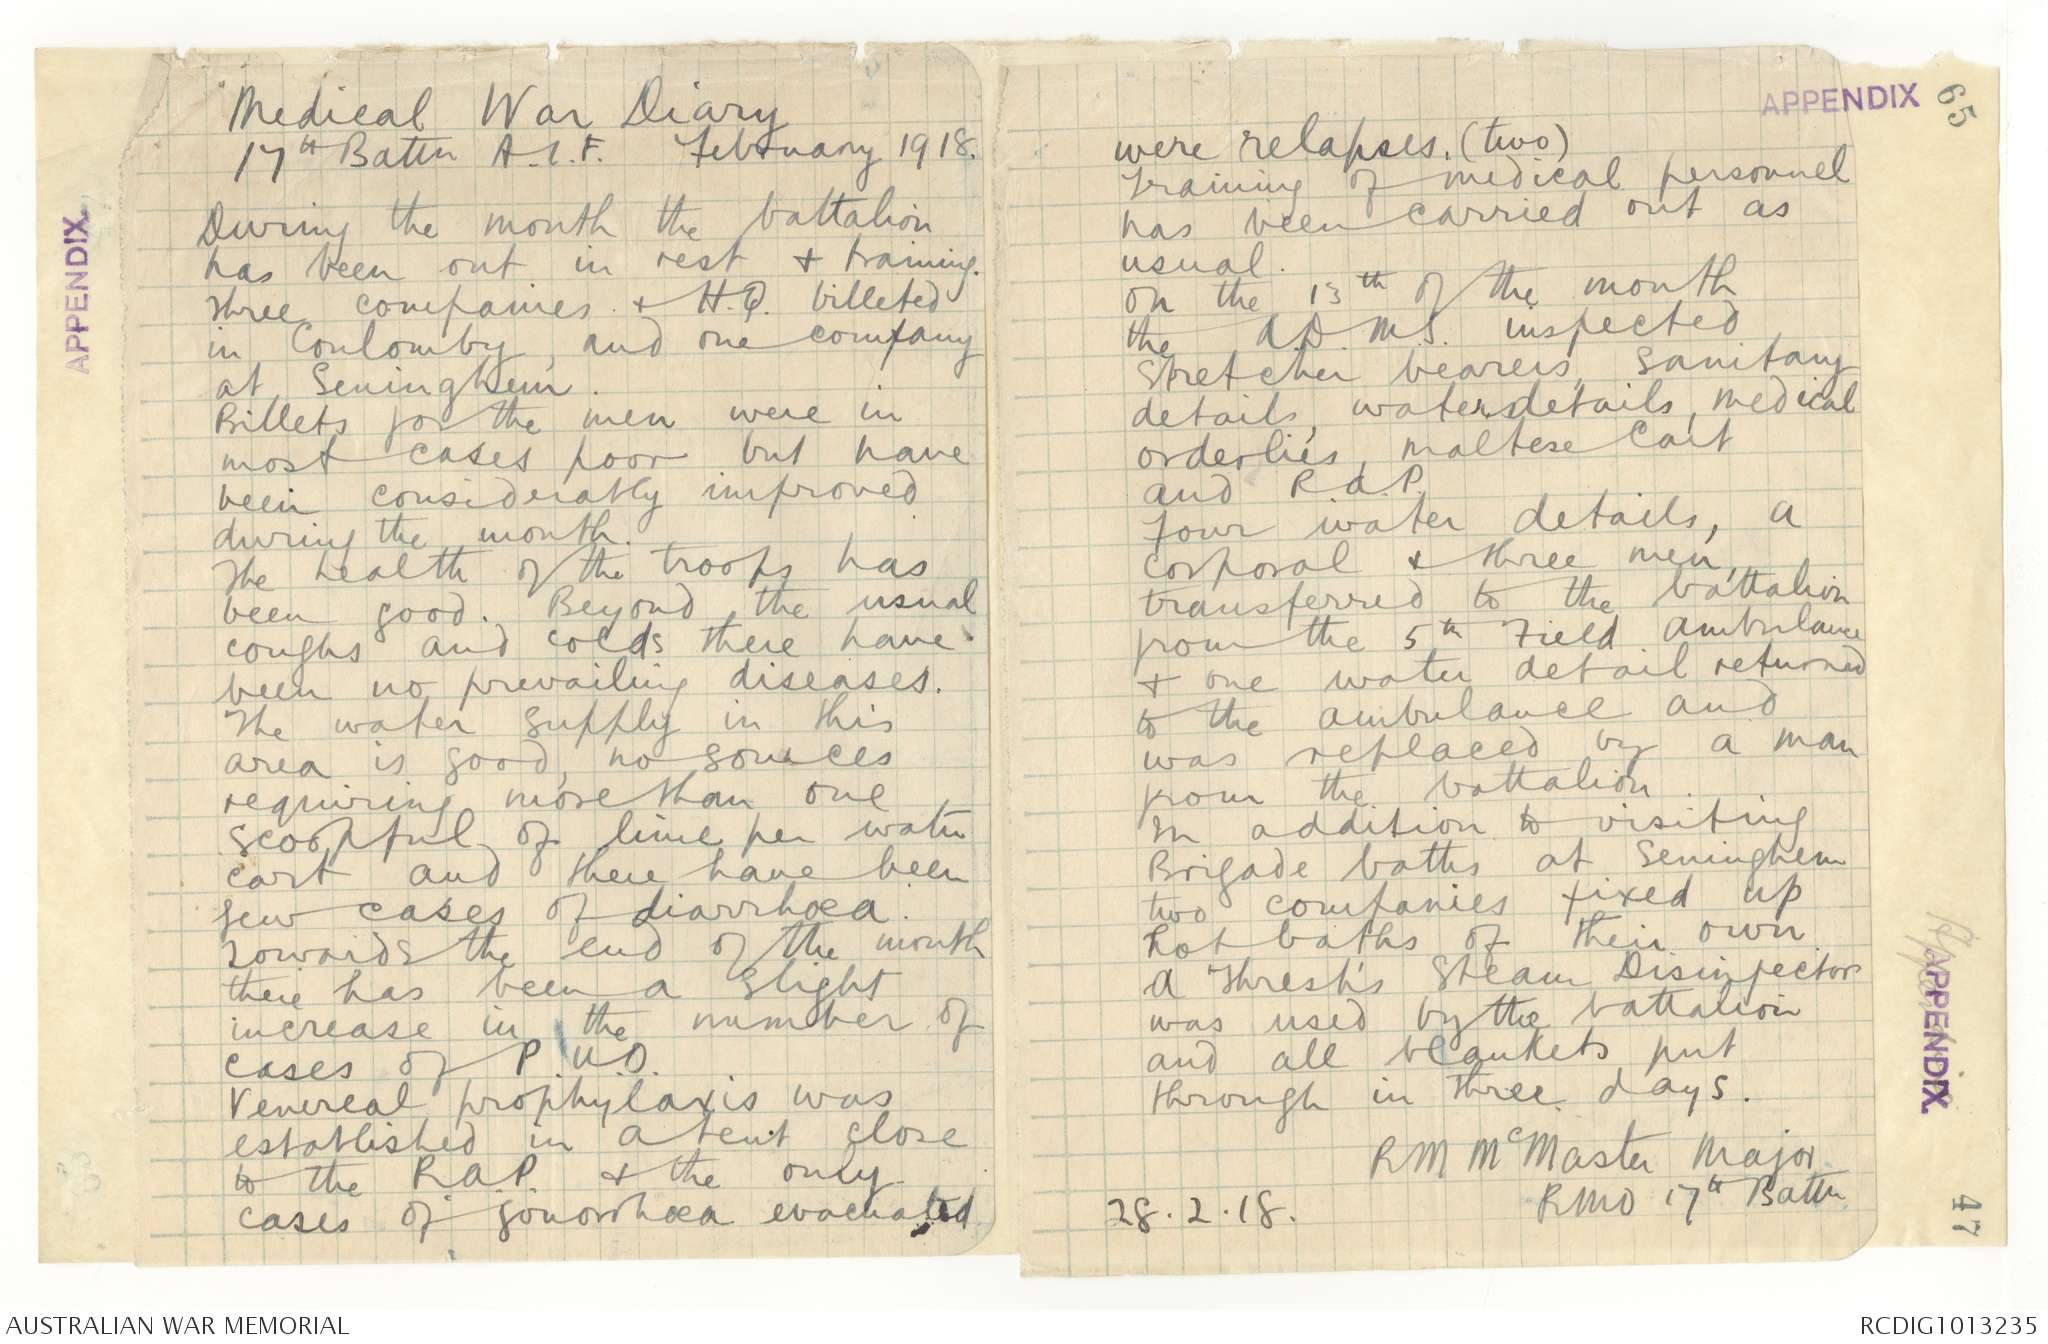 Medical War Diary
17th Battn A.I.F. February 1918.
During the month the battalion
has been out in rest + training.
Three companies + H.Q. billeted
in Coulomby, and one company
at Seninghem.
Billets for the men were in
most cases poor but have
been considerably improved
during the month.
The health of the troops has
been good. Beyond the usual
coughs and colds there have
been no prevailing diseases.
The water supply in this
area is good, no sources
requiring more than one
scoopful of lime per water
cart and there have been
few cases of diarrhoea.
Towards the end of the month
there has been a slight
increase in the number of
cases of P.U.O.
Venereal prophylaxis was
established in a tent close
to the R.A.P. + the only
cases of gonorrhoea evacuated
APPENDIX.
APPENDIX
65
were relapses. (two)
Training of medical personnel
has been carried out as
usual.
On the 13th of the month
the A.D.M.S. inspected
stretcher bearers, sanitary
details, water details, medical
orderlies, maltese cart
and R.A.P.
Four water details, a
corporal + three men,
transferred to the battalion
from the 5th Field Ambulance
+ one water detail returned
to the ambulance and
was replaced by a man
from the battalion.
In addition to visiting
Brigade baths at Seninghem
two companies fixed up
hot baths of their own
A Thresh's Steam Disinfector
was used by the battalion
and all blankets put
through in three days.
RM McMaster Major
RMO 17th Battn
28.2.18.
APPENDIX.
47
AUSTRALIAN WAR MEMORIAL
RCDIG1013235